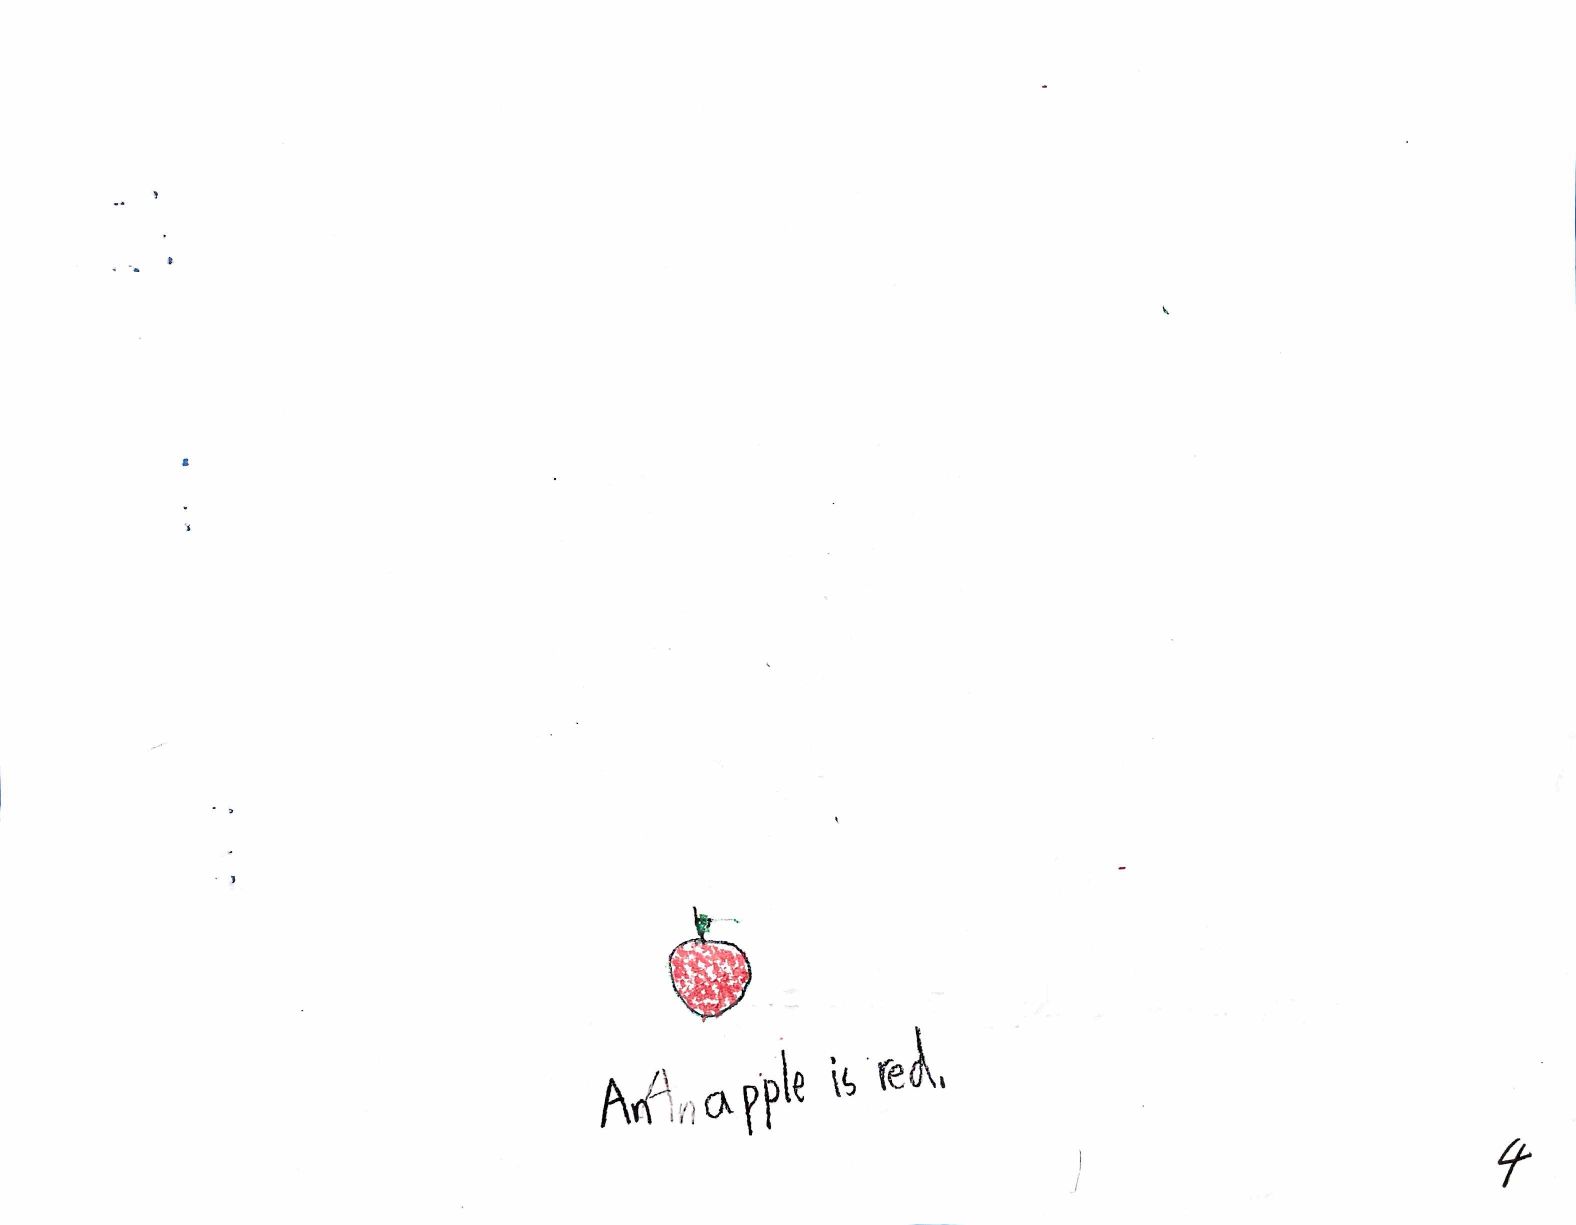 An An apple is red.
4